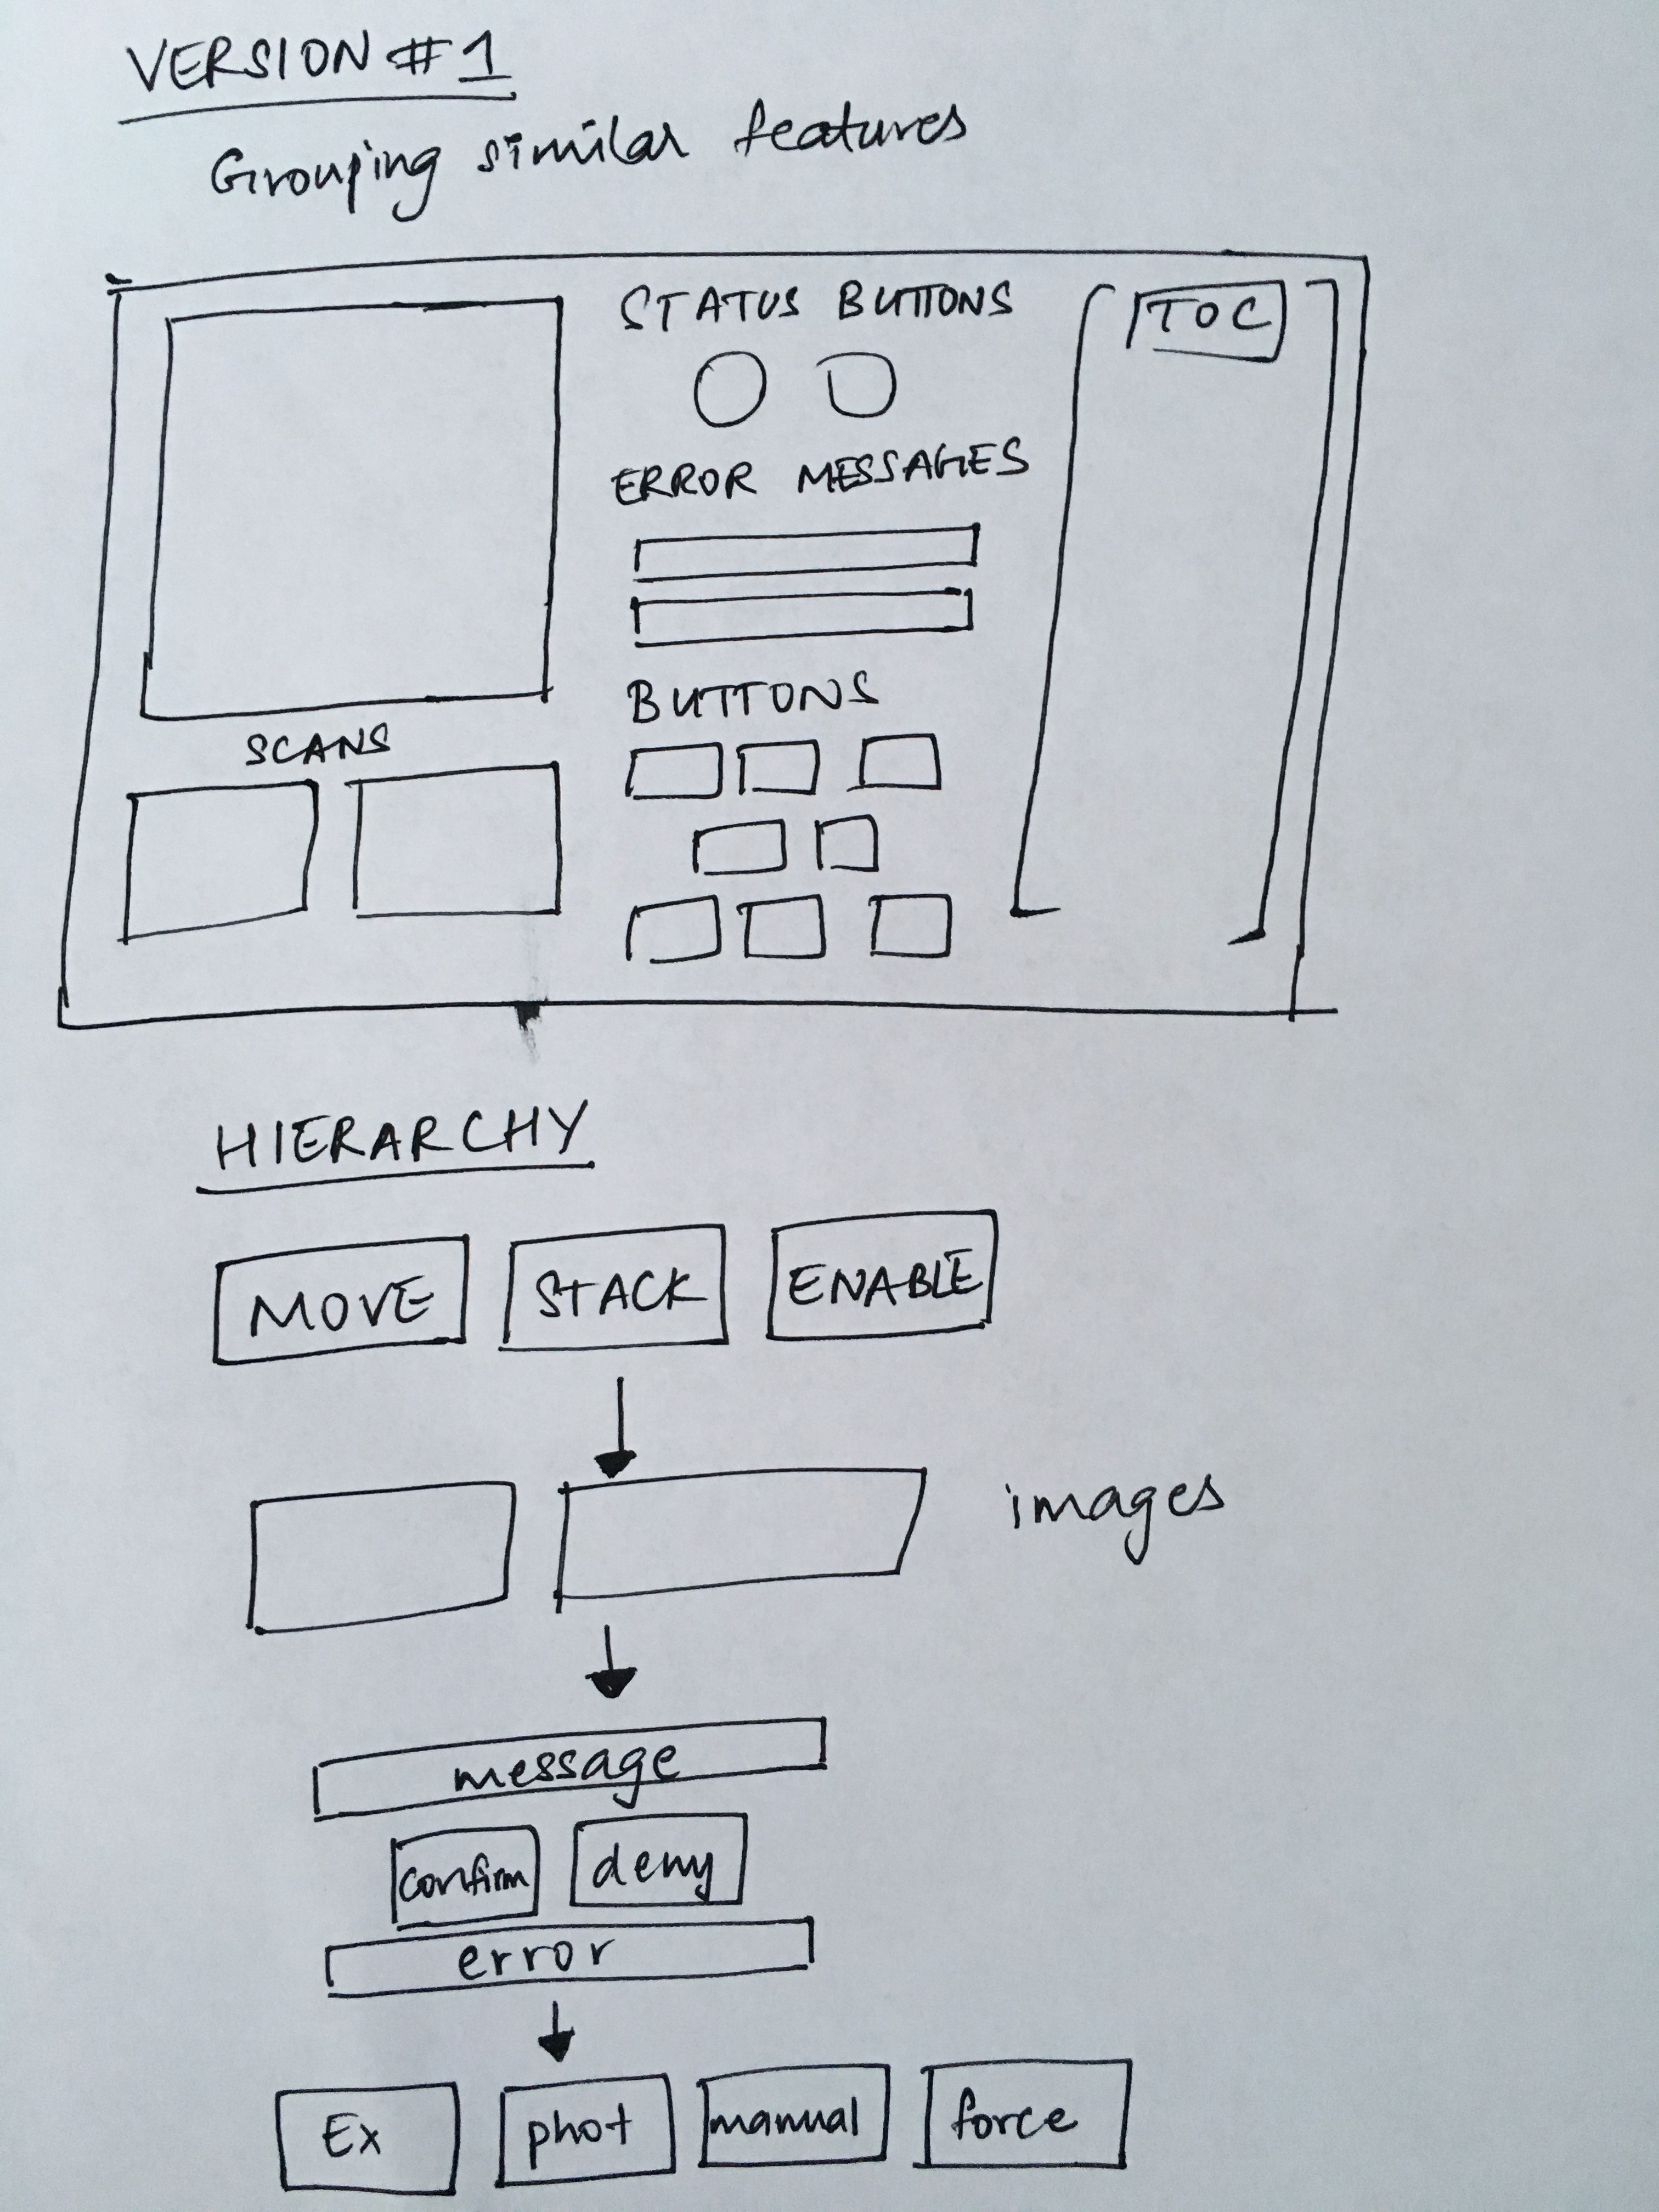 VERSION #1
Grouping similar features
STATUS BUTTONS
TOC
ERROR MESSAGES
BUTTONS
SCANS
HIERARCHY
MOVE STACK ENABLE
images
message
confirm deny
error
Ex phot manual force